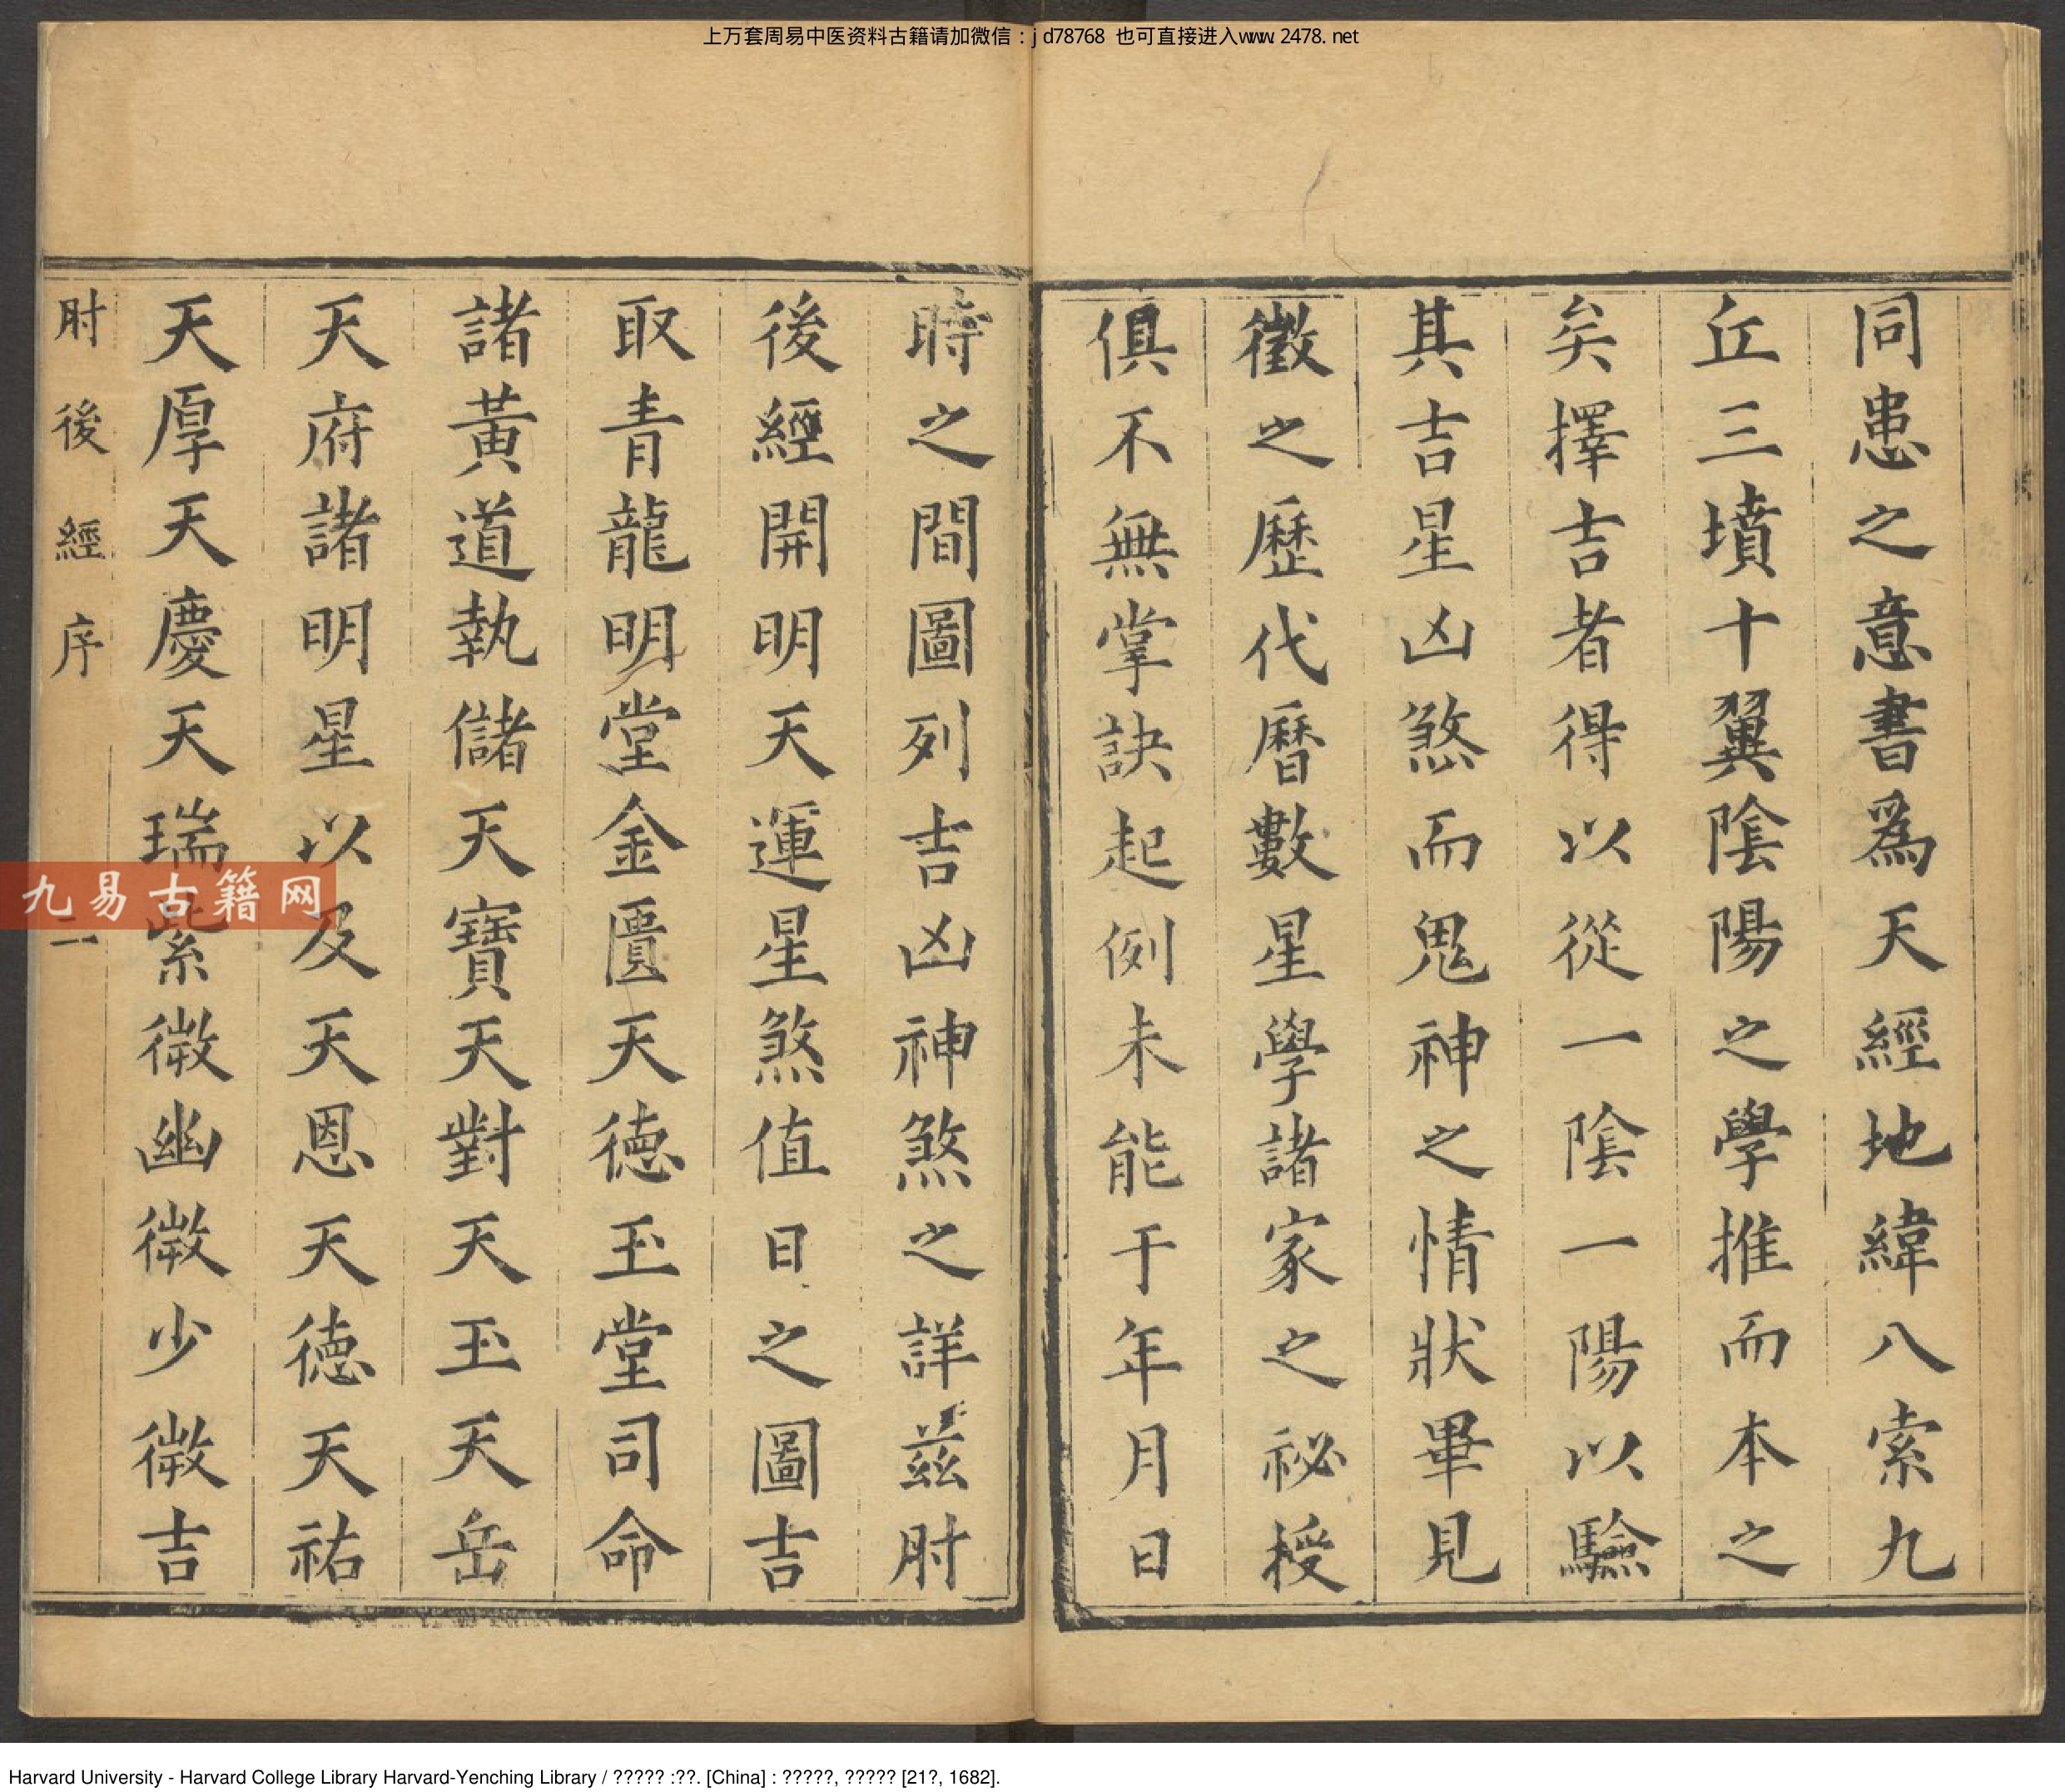 上万套周易中医资料古籍请加微信：jd78768 也可直接进入www.2478.net
同患之意書爲天經地緯八索九
丘三墳十翼陰陽之學推而本之
矣擇吉者得以從一陰一陽以驗
其吉星凶煞而鬼神之情狀畢見
徵之歷代曆數星學諸家之祕授
俱不無掌訣起例未能于年月日
時之間圖列吉凶神煞之詳茲肘
後經開明天運星煞值日之圖吉
取青龍明堂金匱天德玉堂司命
諸黃道執儲天寶天對天玉天岳
天府諸明星以及天恩天德天祐
天厚天慶天瑞紫微幽微少微吉
肘後經序
二
九易古籍网
Harvard University - Harvard College Library Harvard-Yenching Library / ????? :??. [China] : ?????, ????? [21?, 1682].